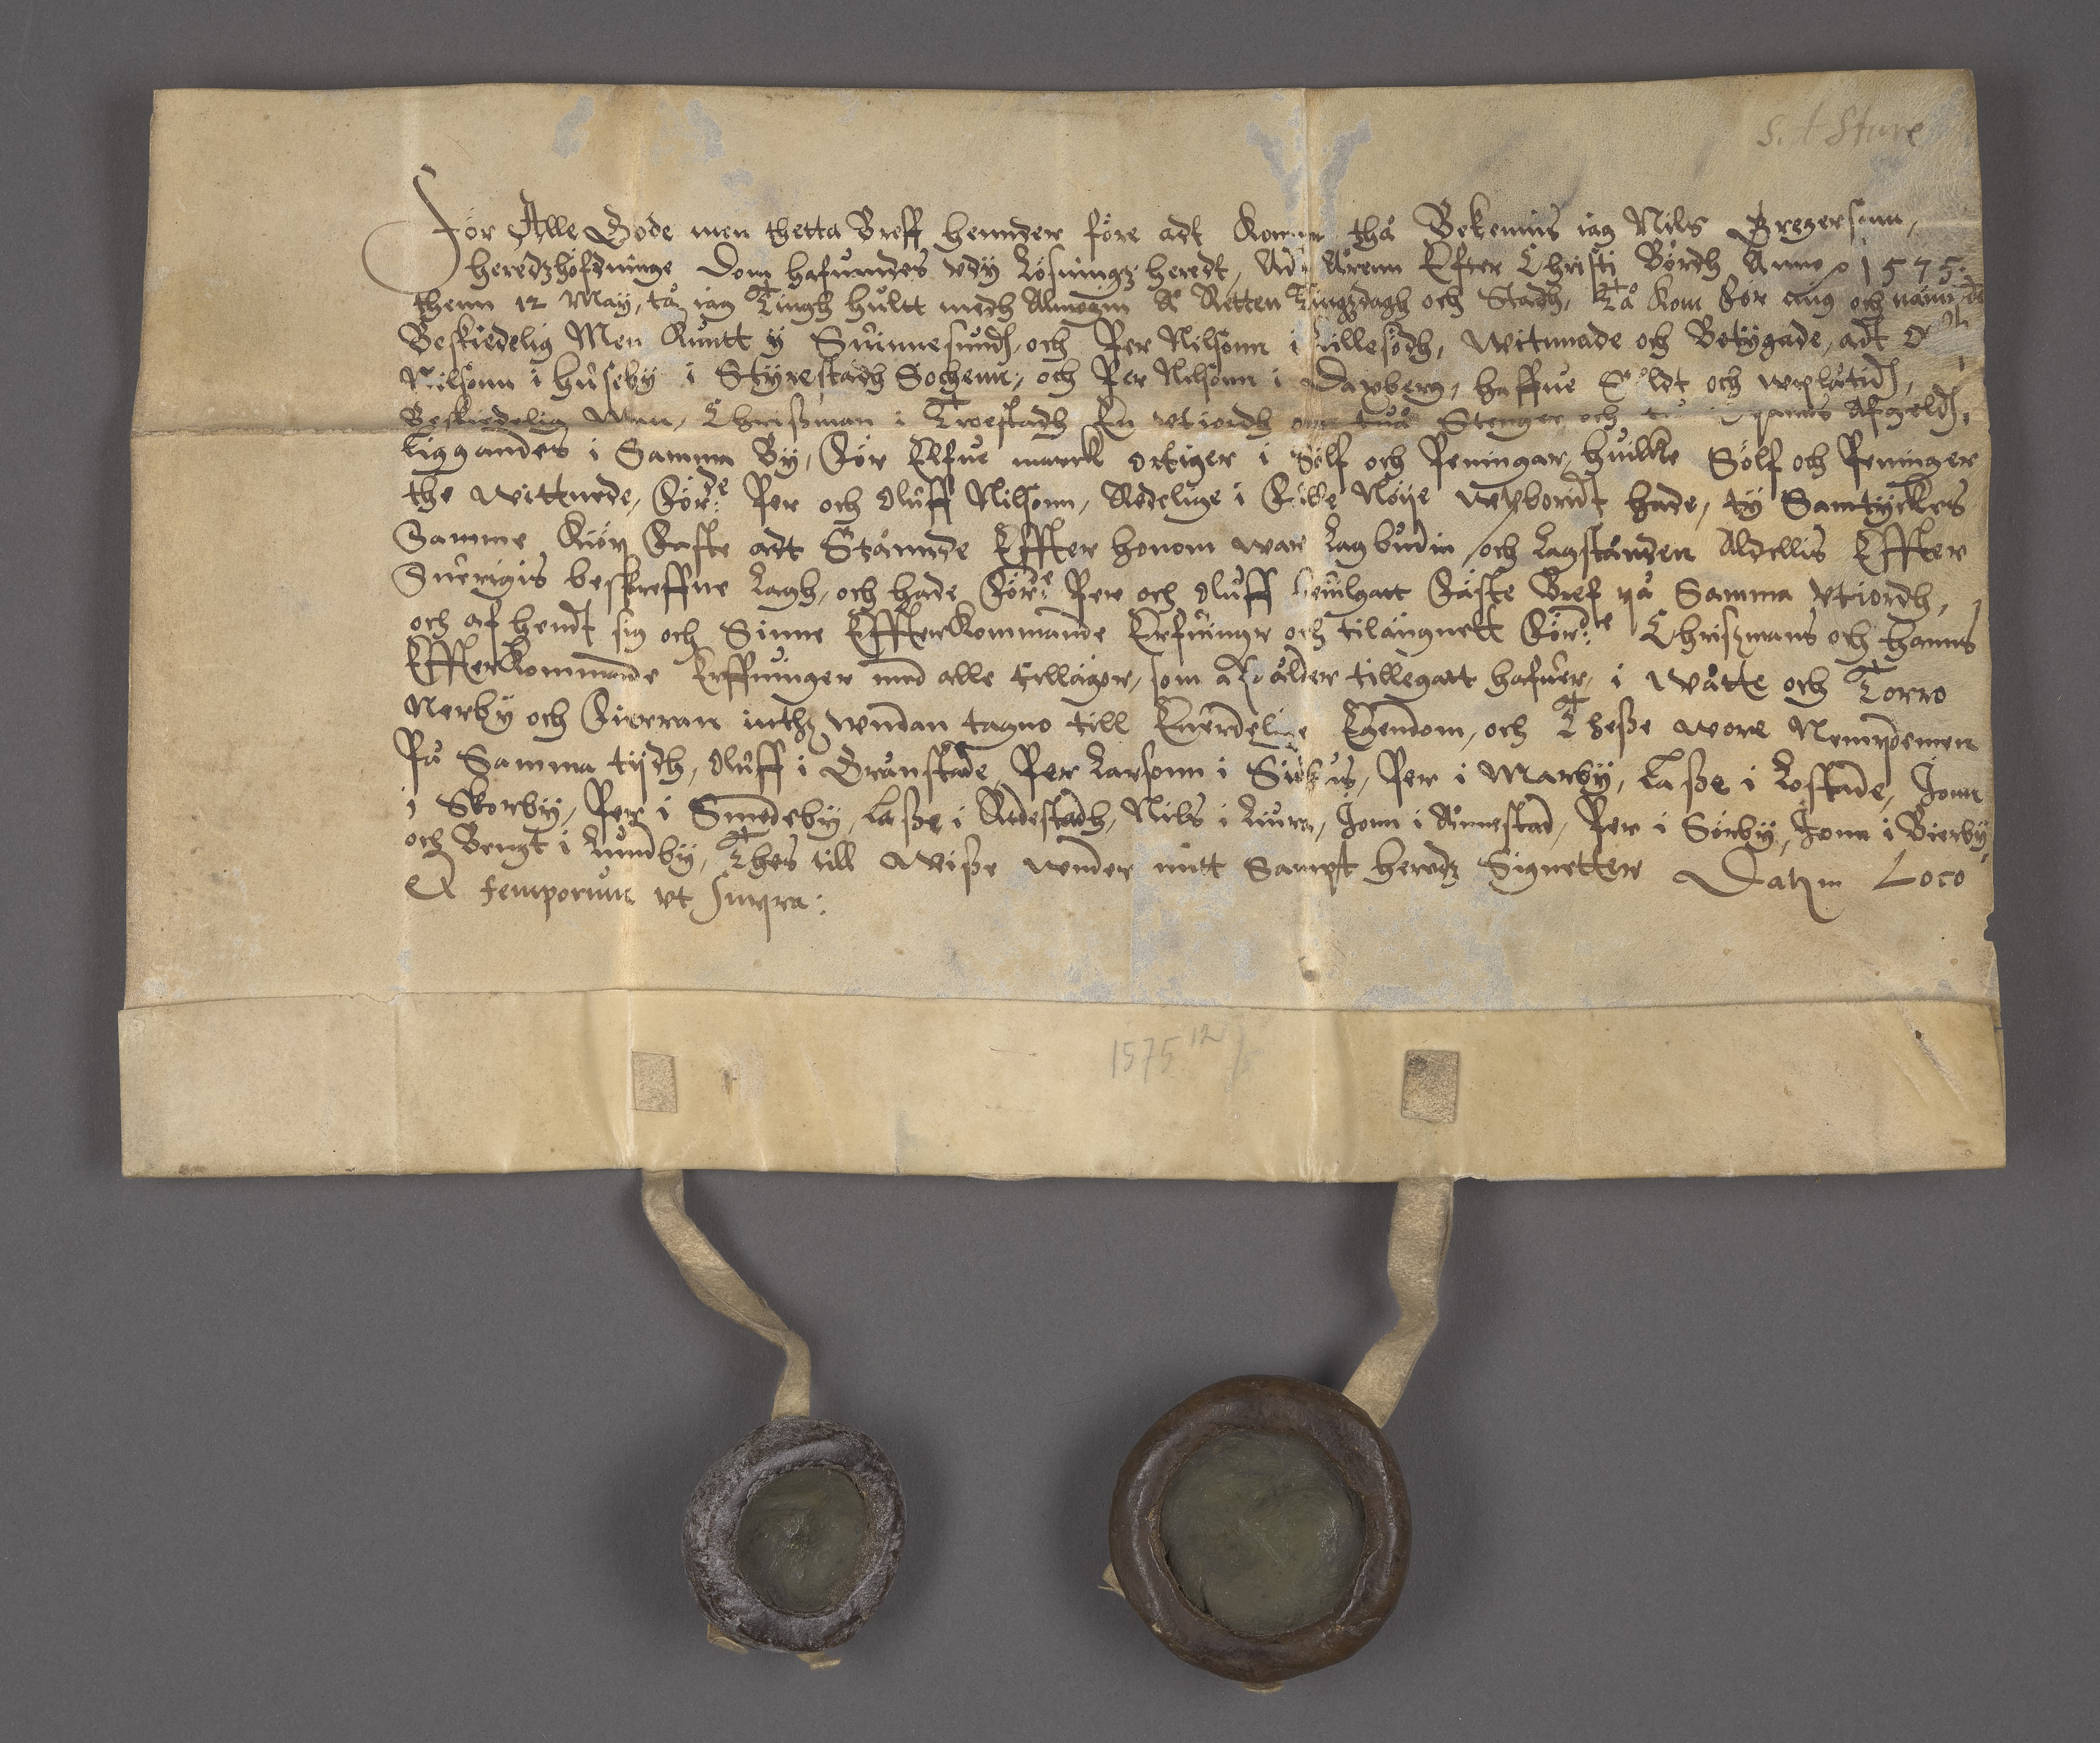 S. t Sture
För Alle Gode men thetta Breff hennder före adt Komma thå Bekennis iag Nils Gregersonn,
heredzhöfdninge Dom hafwandes vdÿ Lösningz heredt, Adt Årenn Efter Christi Bördh Anno 1575
thenn 12 Maÿ, tå iag Tingh hultt medh Almogin Å Retten Tingzdagh och Stadh, Tå Kom för mig och nämnden
Beskiedelig Men Knutt ÿ Suinnesundh, och Per Nilsonn i, witnnade och Betÿgade, adt Ol
Nilsonn i huseby i Stÿrestadh Sochenn, och Per Nilsonn i Daxberg, haffue Soldt och wplatidh,
Beskiedelig Man, Chrisman i Troestadh En vtiordh om tuå Stenger och Afgeldh,
liggandes i Samma Bÿ, för Elfue marck ortiger i Sölf och Peningar, huilke Sölf och Peninger
the wittnede, för:de Per och Oluff Nilsonn, Redelige i fulle Nöÿe wpboridt hade, tÿ Samtÿckes
Samme Kiöp faste adt Stånnde Effter honom war lagbudin och lagstånden Aldellis Effter
Suerigis beskreffne lagh, och hade för:de Per och Oluff beuilgatt fäste Bref på Samma vtiordh,
och af hendt sig och Sinne Effterkommande Erfuinger och tilängnett för:de Chrismans och hanns
Effterkommande Erffuinger med alle tilläger, som af ålder tillegatt hafuer, i wåtte och Torro
Nerbÿ och fierran inthz wndan tagno till Euerdelige Egendom, och Theße wore Nempdemen
På Samma tÿdh, Oluff i Granstade, Per Larsonn i, Per i Marbÿ, Laße i Lostade, Jonn
i Skorbÿ, Per i Smedebÿ, Laße i Rudestadh, Nils i Liura, Jonn i Ånnestad, Per i Sörbÿ, Jonn i Bierbÿ,
och Bengt i Lundbÿ, Thes till Wiße wnder mitt Sampt heredz Signetter Datum Loco
Et temporum vt supra:
1575 12/